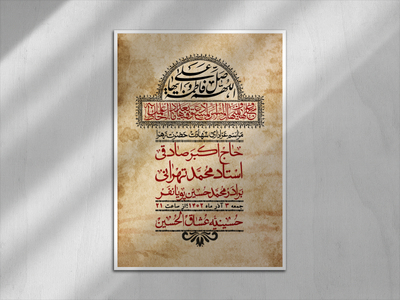 اللهم صل علی
فاطمة و ابیها
مراسم عزاداری شهادت حضرت زهرا
حاج اکبر صادقی
استاد محمد تهرانی
برادر محمدحسین پویانفر
جمعه ۳ آذر ماه ۱۴۰۲ / از ساعت ۲۱
حسینیه عشاق الحسین